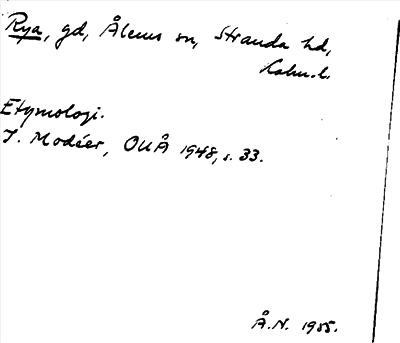 Rya, gd, Ålems sn, Stranda hd,
Kalm.l.
Etymologi.
I. Modéer, OUÅ 1948, s. 33.
Å.N. 1955.